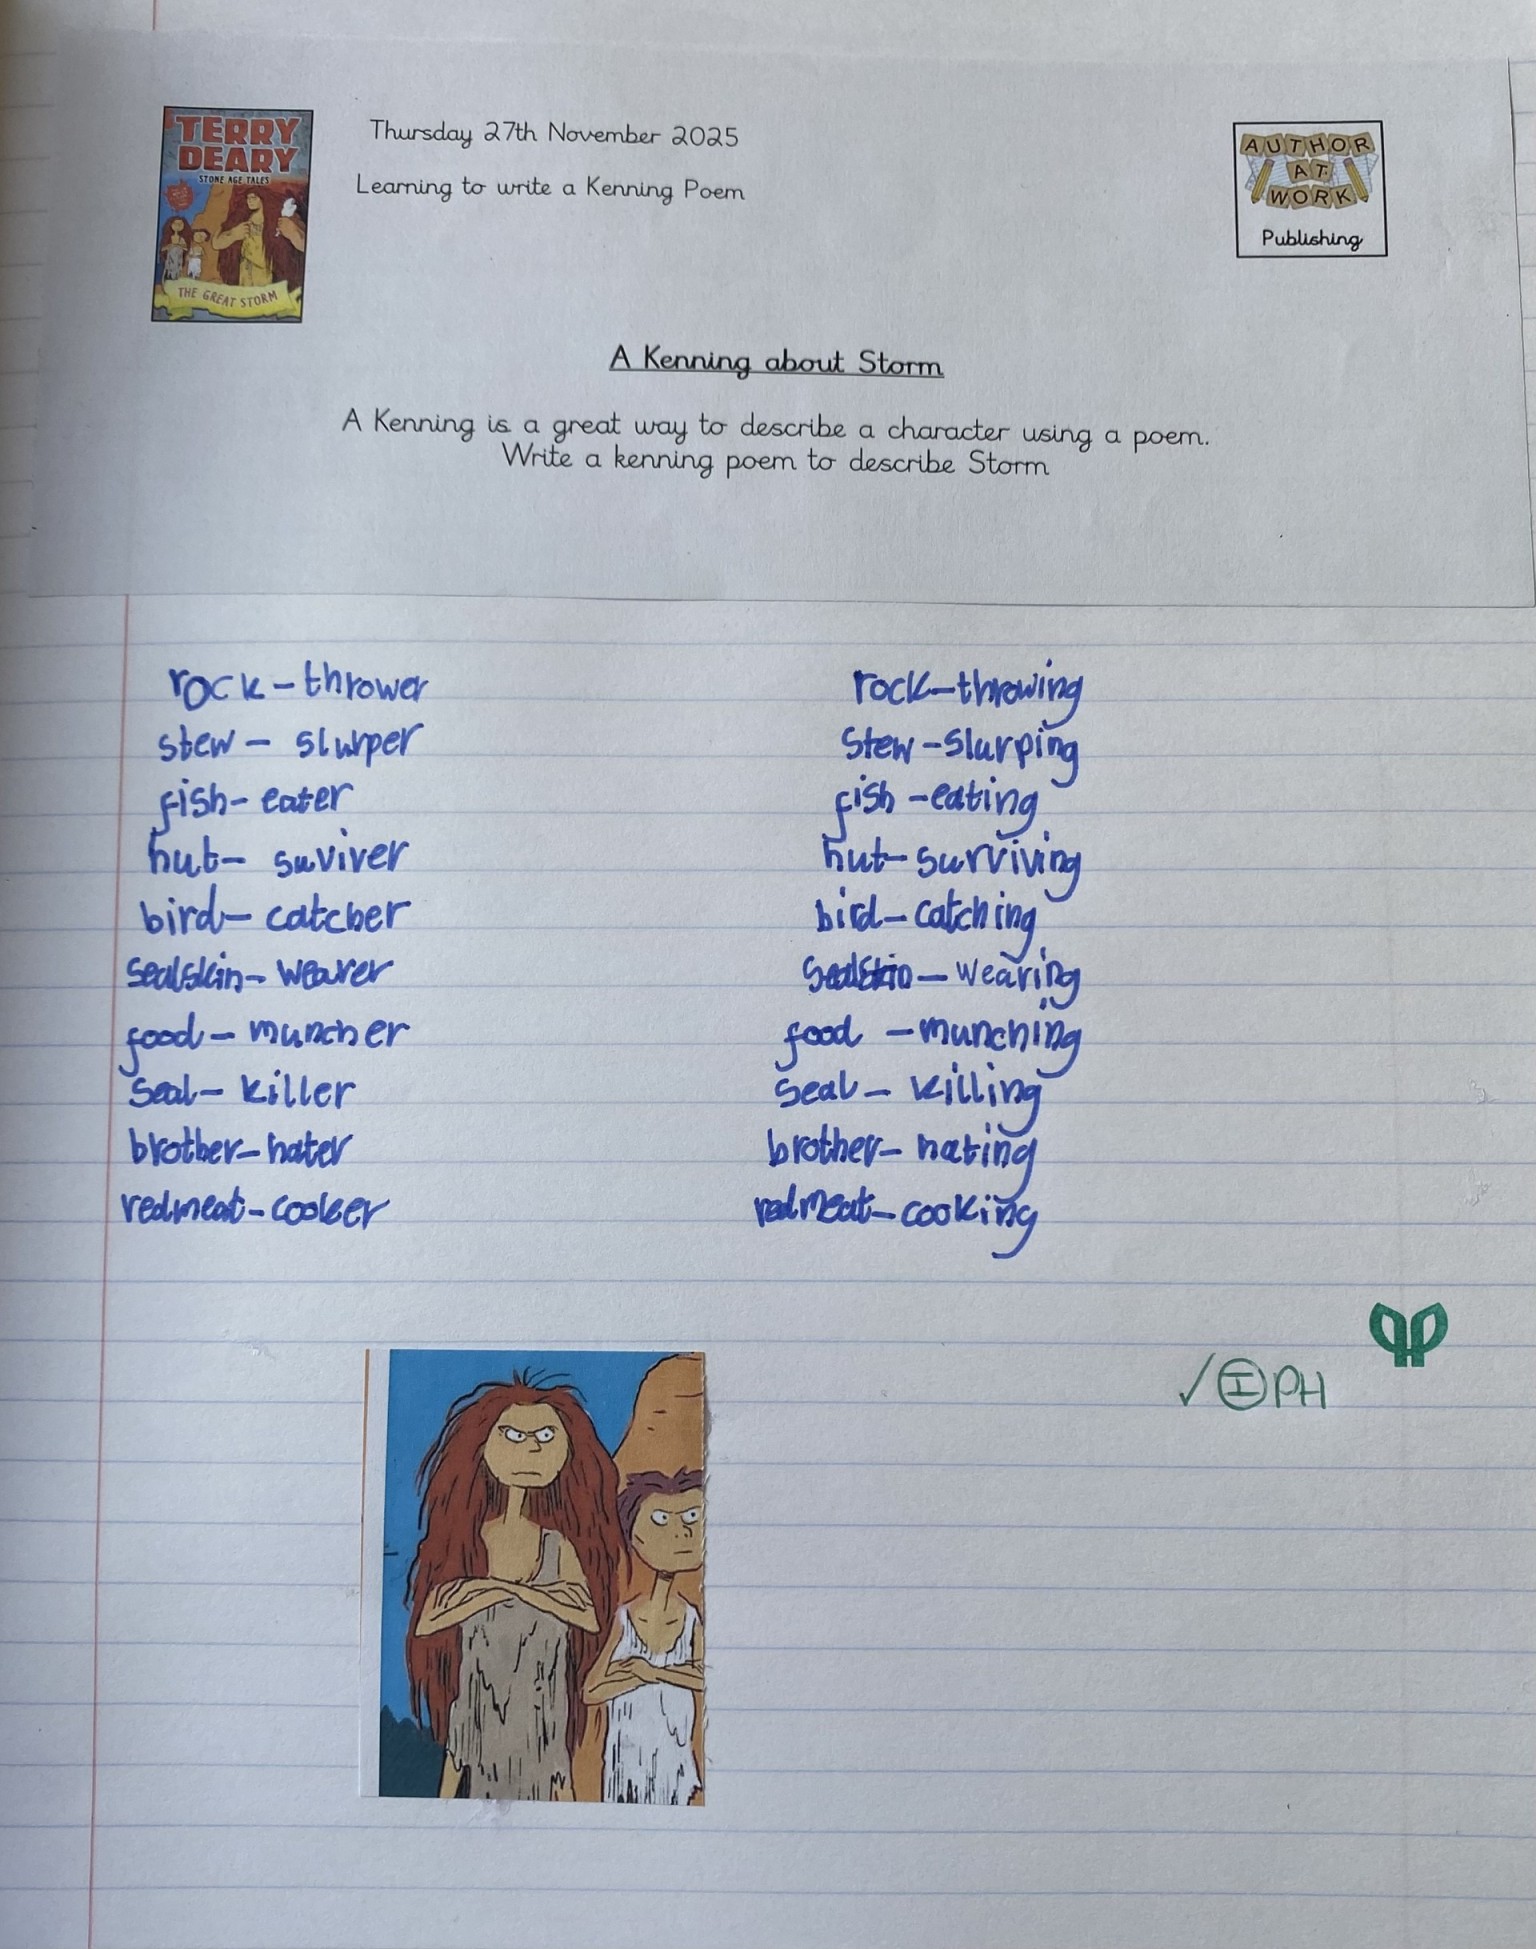 TERRY
DEARY
STONE AGE TALES
THE GREAT STORM
Thursday 27th November 2025
Learning to write a Kenning Poem
AUTHOR
AT
WORK
Publishing
A Kenning about Storm
A Kenning is a great way to describe a character using a poem.
Write a kenning poem to describe Storm
rock-thrower
stew- slurper
fish-eater
hut- suviver
bird- catcher
sealskin- wearer
food- muncher
seal- killer
brother-hater
redmeat-cooker
rock-throwing
stew-slurping
fish-eating
hut-surviving
bird-catching
sealskin-wearing
food -munching
seal- killing
brother- hating
redmeat-cooking
✓ I PH